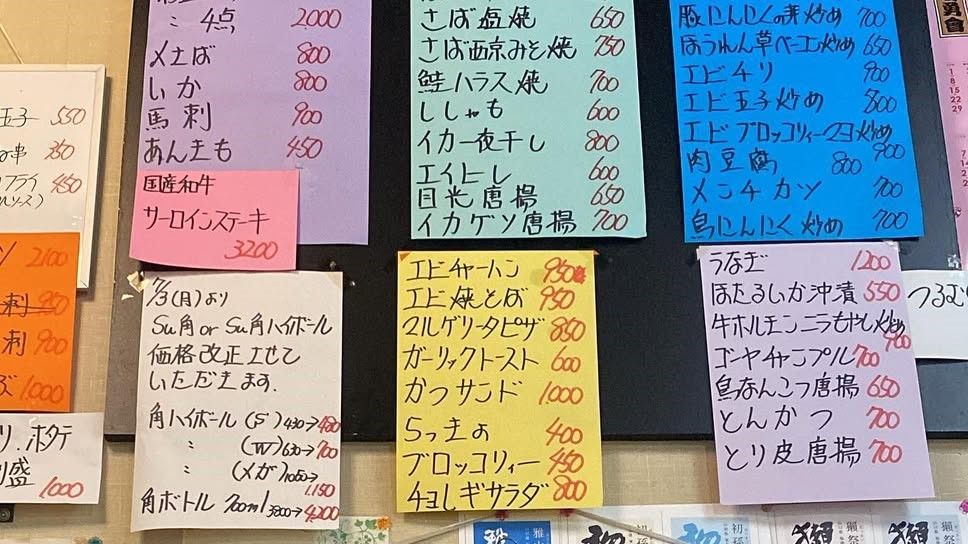 玉子 550
串 350
フライ 450
ソース)
2100
刺 950
刺 900
1,000
ホタテ
盛 1000
〃 4点 2,000
〆さば 800
いか 800
馬刺 900
あんきも 450
国産和牛
サーロインステーキ
3200
7/3(月)より
Su角 or Su角ハイボール
価格改正させて
いただきます.
角ハイボール (S) 430→480
〃 (W) 630→700
〃 (メガ) 1050→1.150
角ボトル 700ml 3800→4200
さば塩焼 650
さば西京みそ焼 750
鮭ハラス焼 700
ししゃも 600
イカ一夜干し 800
エイヒレ 600
目光唐揚 650
イカゲソ唐揚 700
エビチャーハン 950
エビ焼そば 950
マルゲリータピザ 850
ガーリックトースト 600
かつサンド 1,000
らっきょ 400
ブロッコリィー 450
チョレギサラダ 800
豚にんにくの芽炒め 700
ほうれん草ベーコン炒め 650
エビチリ 900
エビ玉子炒め 800
エビブロッコリィーマヨ炒め 900
肉豆腐 800
メンチカツ 700
鳥にんにく炒め 700
うなぎ 1200
ほたるいか沖漬 550
牛ホルモンニラもやし炒め 900
ゴーヤチャンプル 700
鳥なんこつ唐揚 650
とんかつ 700
とり皮唐揚 700
つるむ
勇會
1
8
15
22
29
初孫
初孫
獺祭
獺祭